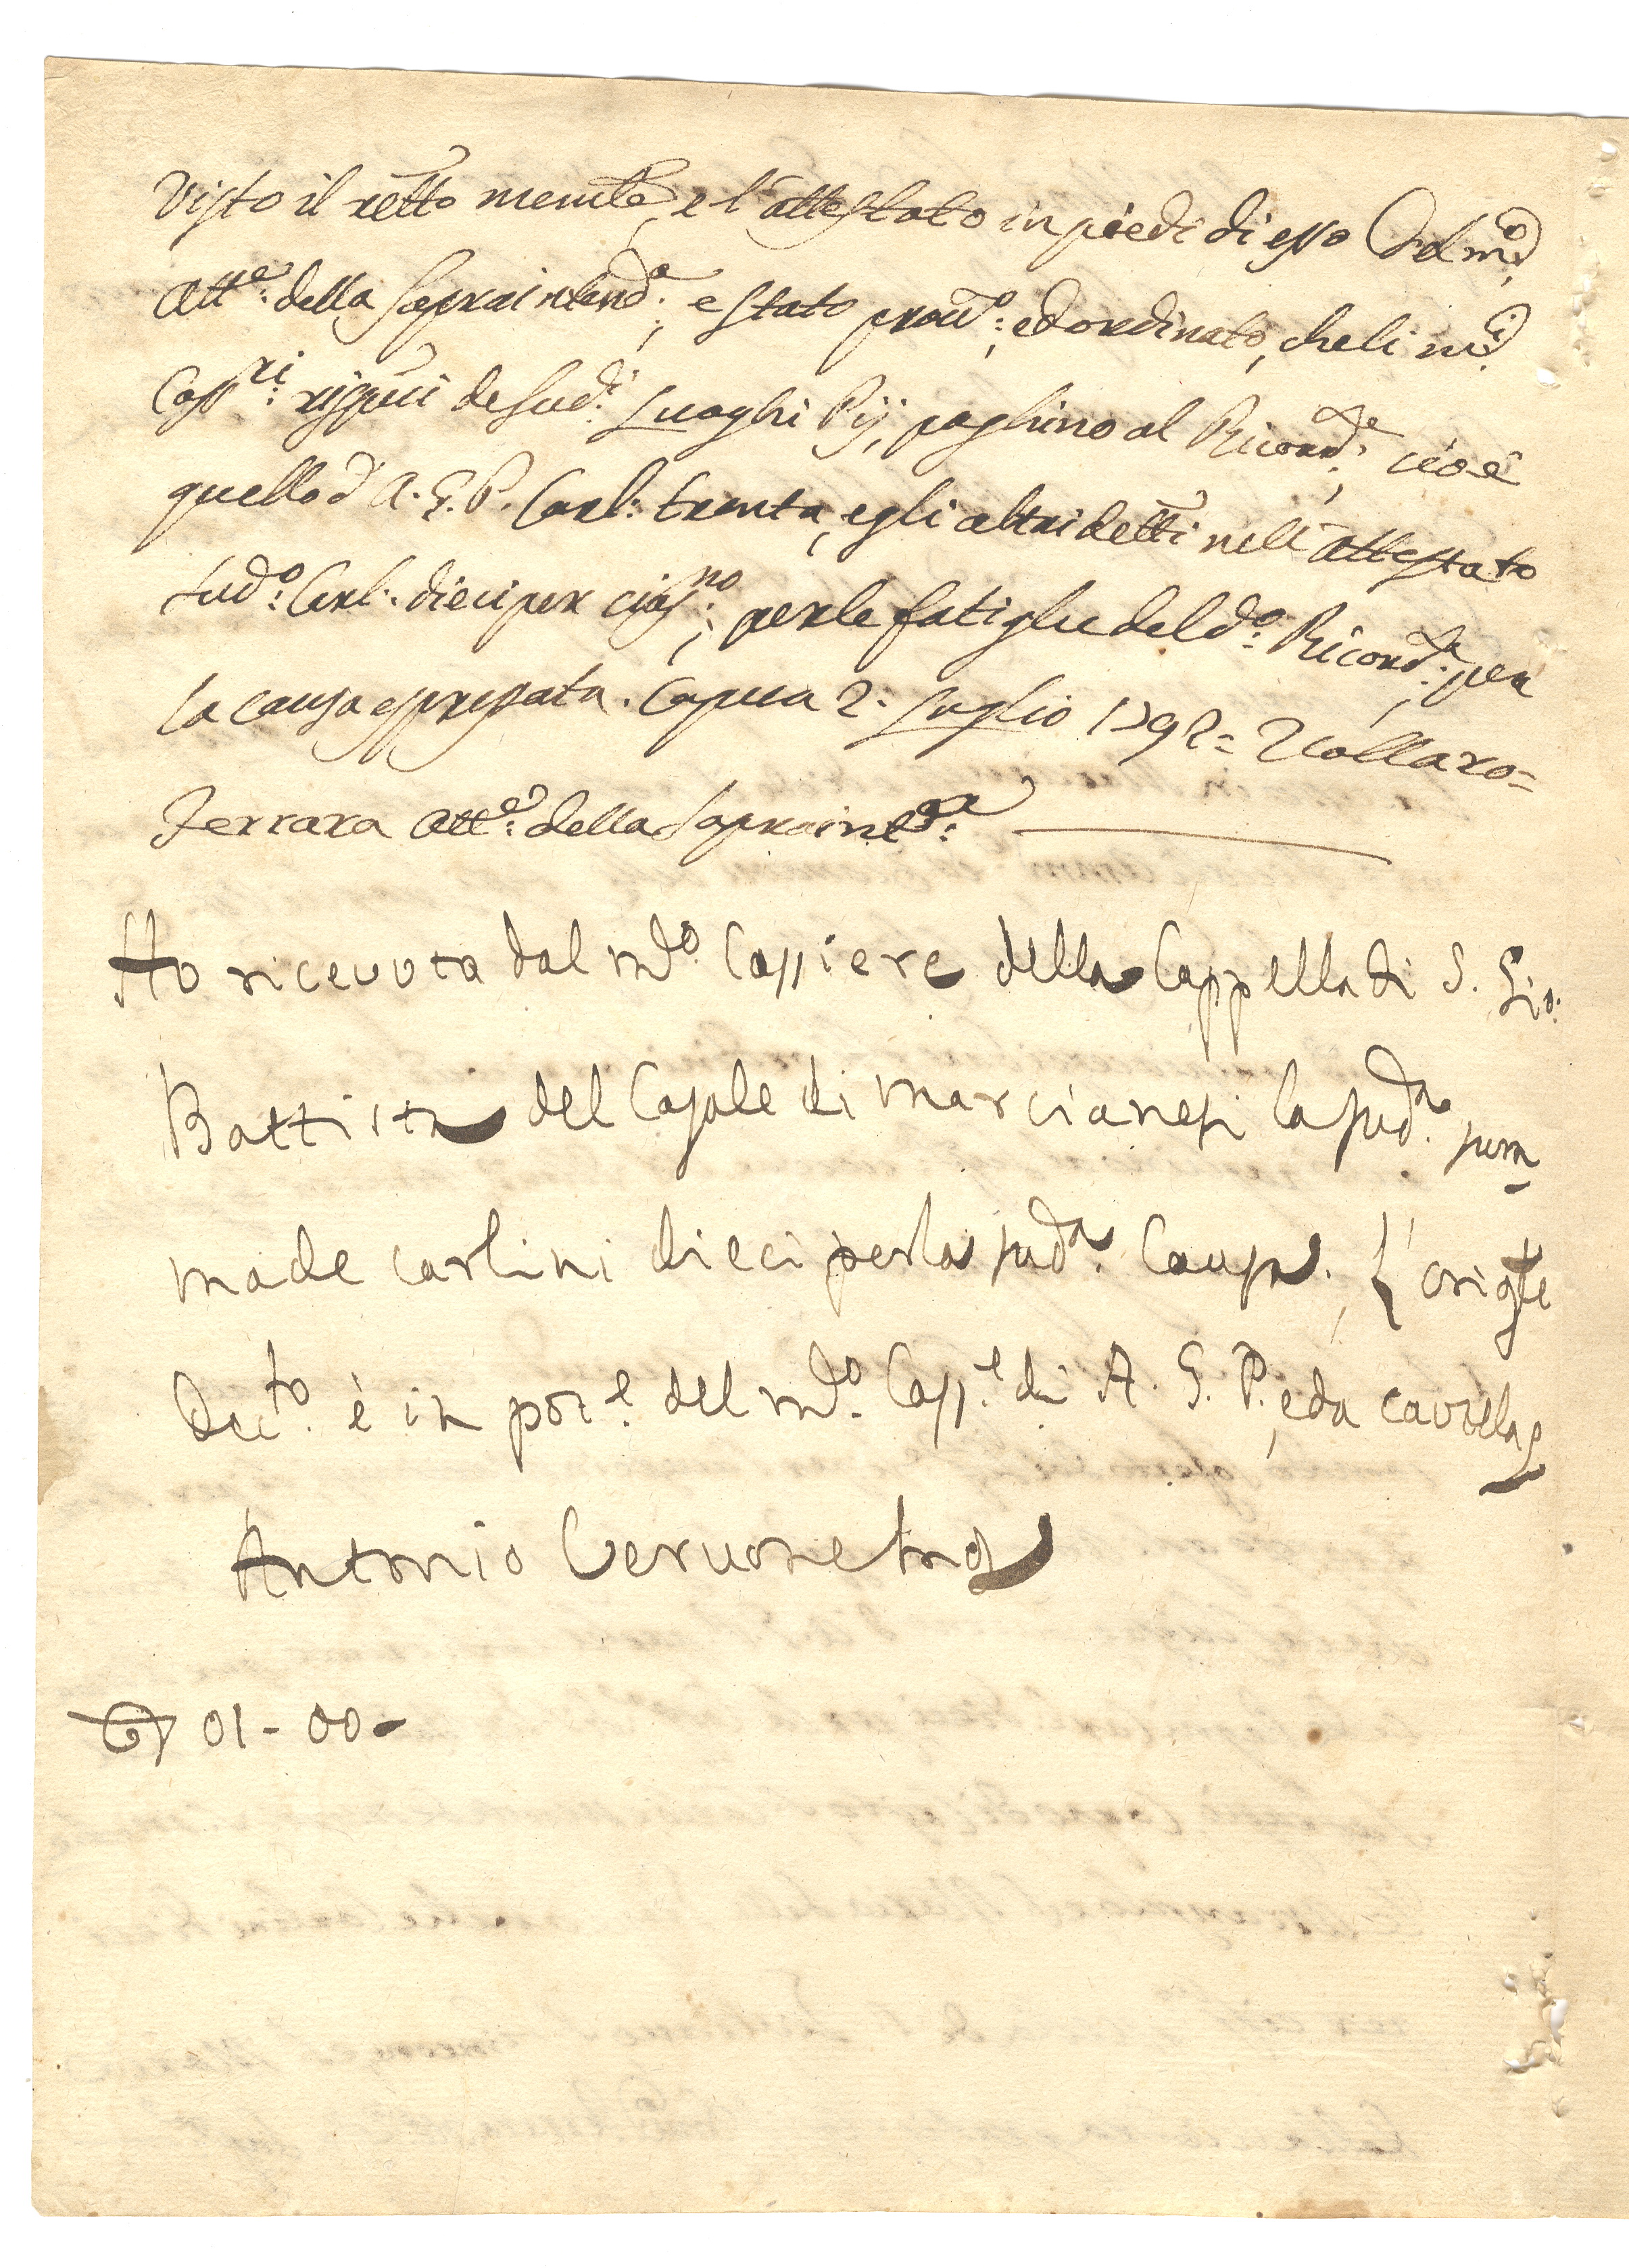 Visto il retto memle, e l'attestato in piedi di esso dal mo:
Atto: della sopraintenda:, e stato provo:, ed ordinato, che li mci:
Cassri: rispvi de sudi: Luoghi Pij, paghino al Ricorrde:, cioè
quello d'A. G. P. Carl: trenta, e gli altri detti nell'attestato
sudo: Carl: dieci per ciasno:, per le fatighe del do: Ricorrde:, per
la causa espressata. Capua 2: Luglio 1792= Vollaro=
Ferrara Atto: della Sopraintda:
Ho ricevuta dal mdo: Cassiere della Cappella di S. Gio:
Battista del Casale di Marcianesi la suda: som
ma de carlini dieci per la suda: Causa. L'origle
Decto: è in pore: del mdo: Casse: di A. G. P., ed a cautela
Antonio Cervone
01-00-